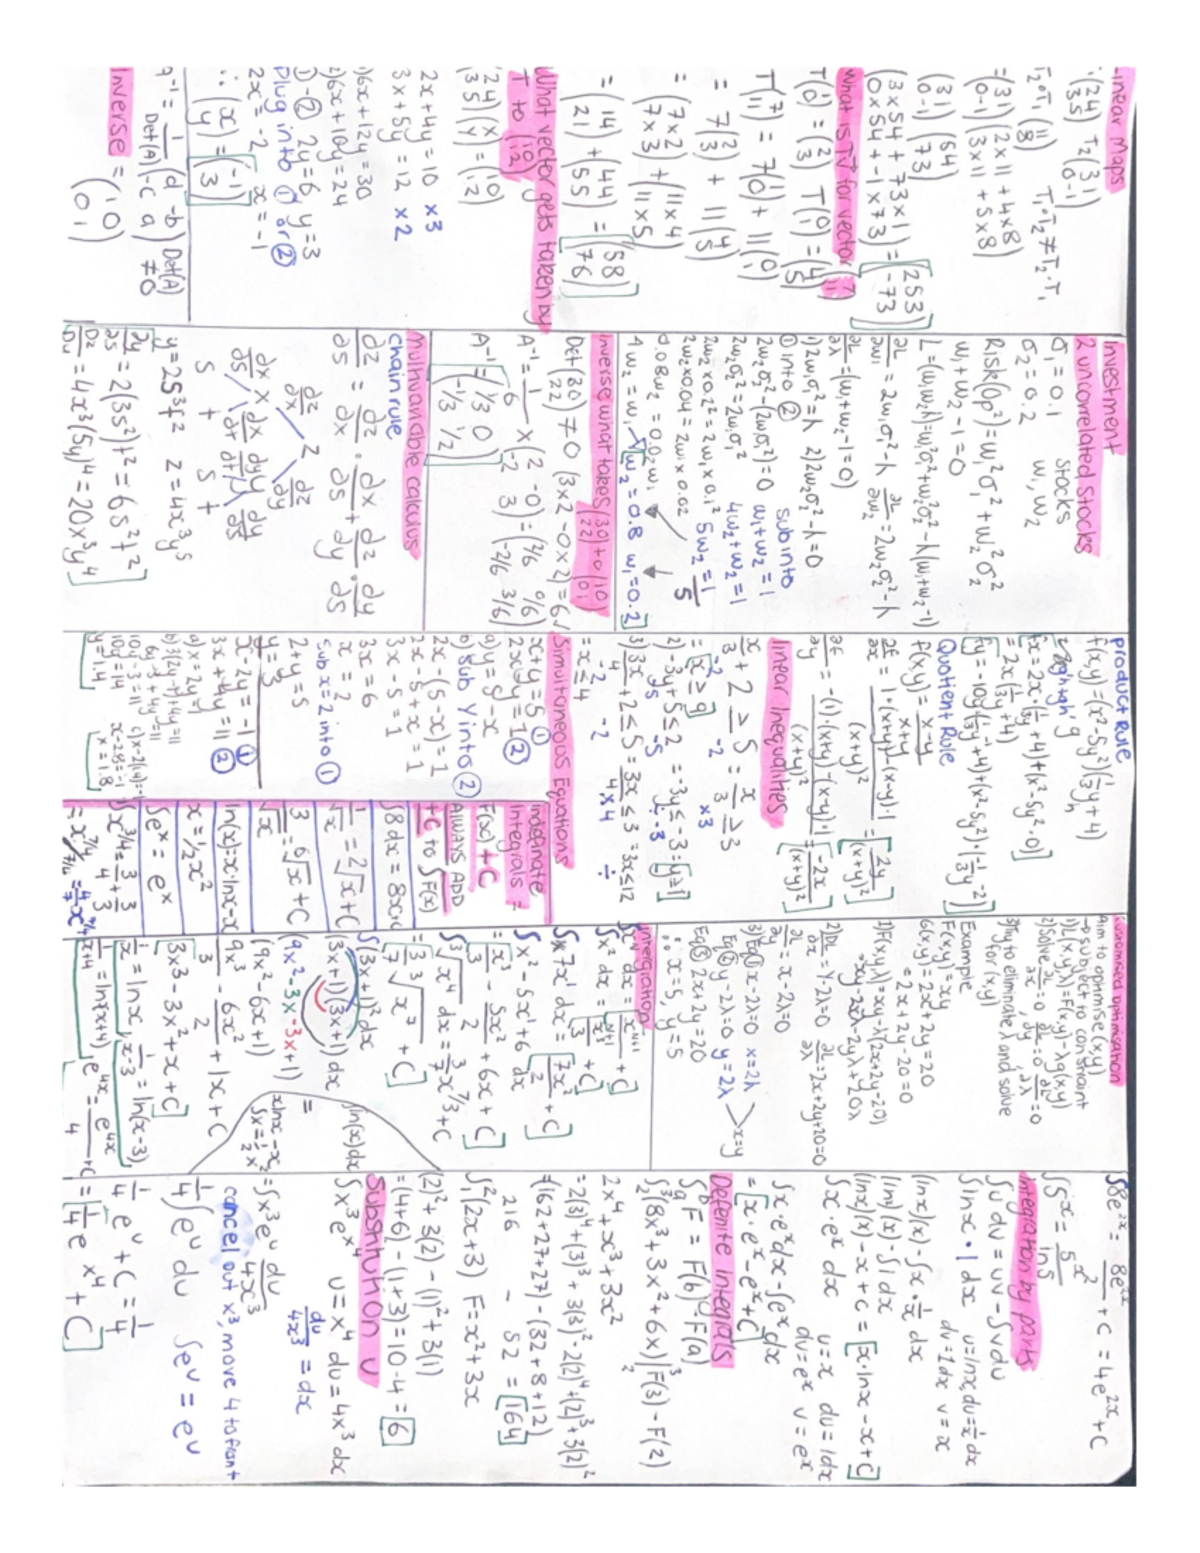 Linear Maps
(24) T₂(31)
(35) (0-1)
T₂∘T₁(11) T₁∘T₂≠T₂∘T₁
(8)
=(31)(2x11+4x8)
(0-1)(3x11+5x8)
(31)(54)
(0-1)(73)
(3x54+73x1)=[(253)
(0x54+-1x73) (-73)]
What is TV for vector
T(1)=(2) T(0)=(4)
(0) (3) (1) (5)
T(7)=7(1)+11(0)
(11) (0) (1)
=7(2)+11(4)
(3) (5)
=(7x2)+(11x4)
(7x3) (11x5)
=(14)+(44)=[(58)
(21) (55) (76)]
What vector gets taken by
T to (10)
(12)
(24)(x)=(10)
(35)(y) (12)
2x+4y=10 x3
3x+5y=12 x2
1)6x+12y=30
2)6x+10y=24
①-② 2y=6 y=3
Plug into ① or ②
2x=-2 x=-1
∴(x)=[(-1)
(y) (3)]
A⁻¹=1/Det(A)(d -b) Det(A)
(-c a) ≠0
Inverse =(10)
(01)
Investment
2 uncorrelated stocks
σ₁=0.1 stocks
σ₂=0.2 w₁,w₂
Risk(σp²)=w₁²σ₁²+w₂²σ₂²
w₁+w₂-1=0
L=(w₁w₂λ)=w₁²σ₁²+w₂²σ₂²-λ(w₁+w₂-1)
∂L/∂w₁=2w₁σ₁²-λ ∂L/∂w₂=2w₂σ₂²-λ
∂L/∂λ=(w₁+w₂-1=0)
1)2w₁σ₁²=λ 2)2w₂σ₂²-λ=0
① into ② sub into
2w₂σ₂²-(2w₁σ₁²)=0 w₁+w₂=1
2w₂σ₂²=2w₁σ₁² 4w₂+w₂=1
2w₂x0.2²=2w₁x0.1² 5w₂=1/5
2w₂x0.04=2w₁x0.02
0.08w₂=0.02w₁
4w₂=w₁ [w₂=0.8 w₁=0.2]
Inverse what takes (30) to (10)
(22) (01)
Det(30)≠0 (3x2-0x2)=6
(22)
A⁻¹=1/6 x(2 -0)=(2/6 0/6)
(-2 3) (-2/6 3/6)
A⁻¹=[(1/3 0)
(-1/3 1/2)]
Multivariable calculus
chain rule
∂z/∂s=∂z/∂x·∂x/∂s+∂z/∂y·∂y/∂s
∂z/∂x z ∂z/∂y
∂x/∂s x ∂x/∂t ∂y/∂t y ∂y/∂s
s t s t
y=2s³t² z=4x³y⁵
[∂y/∂s=2(3s²)t²=6s²t²
Dz/Du=4x³(5y)⁴=20x³y⁴]
Product Rule
f(x,y)=(x²-5y²)(1/3y+4)
gh+gh' g h
fx=2x(1/3y+4)+(x²-5y²·0)
=2x(1/3y+4)]
fy=-10y(1/3y⁻¹+4)+(x²-5y²)·(1/3y⁻²)]
Quotient Rule
f(x,y)=x-y/x+y
∂f/∂x=1·(x+y)-(x-y)·1/(x+y)²=[2y/(x+y)²]
∂f/∂y=-(1)·(x+y)-(x-y)·1/(x+y)²=[-2x/(x+y)²]
linear Inequalities
x/3+2≥5=x/3≥3
-2 -2 x3
=[x≥9]
2)-3y+5≤2=-3y≤-3=[y≥1]
-5 -5 ÷-3
3)3x/4+2≤5=3x/4≤3=3x≤12
-2 -2 4 x4 ÷
=x≤4
Simultaneous Equations
x+y=5①
2xy=1②
a)y=5-x
b)sub y into②
2x(5-x)=1
2x-5+x=1
3x-5=1
3x=6
x=2
sub x=2 into①
2+y=5
y=3
x-2y=-1①
3x+4y=11②
a)x=2y-1
b)3(2y-1)+4y=11
6y-3+4y=11
10y-3=11 c)x-2(1.4)=-1
10y=14 x-2.8=-1
y=1.4 x=1.8
Indefinate
Integrals -
F(x)+C
ALWAYS ADD
+C to ∫F(x)
∫8dx=8x+c
1/√x=2√x+C
3/√x=6√x+C
ln(x)=x·lnx-x
x=½x²
∫eˣ=eˣ
∫x³/⁴=3/4+3/3
=x⁷/⁴/7/4=4/7x⁷/⁴
Constrained Optimisation
aim to optimise(x,y)
→subject to constraint
1)L(x,y,λ)=F(x,y)-λg(x,y)
2)Solve ∂L/∂x=0 ∂L/∂y=0 ∂L/∂λ=0
3)Try to eliminate λ and solve
for(x,y)
Example
F(x,y)=xy
G(x,y)=2x+2y=20
=2x+2y-20=0
1)F(x,y,λ)=xy-λ(2x+2y-20)
=xy-2xλ-2yλ+20λ
2)∂L/∂x=y-2λ=0 ∂L/∂λ=2x+2y+20=0
∂L/∂y=x-2λ=0
3)Eq①x-2λ=0 x=2λ >x=y
Eq②y-2λ=0 y=2λ
Eq③2x+2y=20
∴x=5, y=5
Intergration
∫xⁿdx=xⁿ⁺¹/n+1+C]
∫x²dx=x³/3+C]
∫x7x¹dx=[7x²/2+C]
∫x²-5x¹+6dx
=[x³/3-5x²/2+6x+C]
∫³√x⁴dx=3/7x⁷/³+C
=[3/7³√x⁷+C]
∫(3x+1)²dx ∫ln(x)dx
(3x+1)(3x+1)dx = xlnx-x
(9x²-3x-3x+1) ∫x=½x²
(9x²-6x+1)
9x³/3-6x²/2+1x+C
[3x³-3x²+x+C]
1/x=lnx, 1/x-3=ln(x-3)
1/x+4=ln(x+4), e⁴ˣ=e⁴ˣ/4+C
∫8e²ˣ=8e²ˣ/2+C=4e²ˣ+C
∫5ˣ=5ˣ/ln5
Integration by parts
∫u dv=uv-∫v du
∫lnx·1dx u=lnx, du=1/x dx
dv=1dx v=x
(lnx)(x)-∫x·1/x dx
(lnx)(x)-∫1dx
(lnx)(x)-x+c=[x·lnx-x+C]
∫x·eˣdx u=x du=1dx
dv=eˣ v=eˣ
∫x·eˣdx-∫eˣdx
=[x·eˣ-eˣ+C]
Definite integrals
∫ᵇₐF=F(b)-F(a)
∫³₂(8x³+3x²+6x)|³₂F(3)-F(2)
2x⁴+x³+3x²
=2(3)⁴+(3)³+3(3)²-2(2)⁴+(2)³+3(2)²
=(162+27+27)-(32+8+12)
216 - 52=[164]
∫²₁(2x+3) F=x²+3x
(2)²+3(2)-(1)²+3(1)
=(4+6)-(1+3)=10-4=[6]
Substitution U
∫x³eˣ⁴ u=x⁴ du=4x³dx
=∫x³eᵘdu/4x³ du/4x³=dx
cancel out x³, move 4 to front
1/4∫eᵘdu ∫eᵘ=eᵘ
1/4eᵘ+C=1/4
=[1/4eˣ⁴+C]